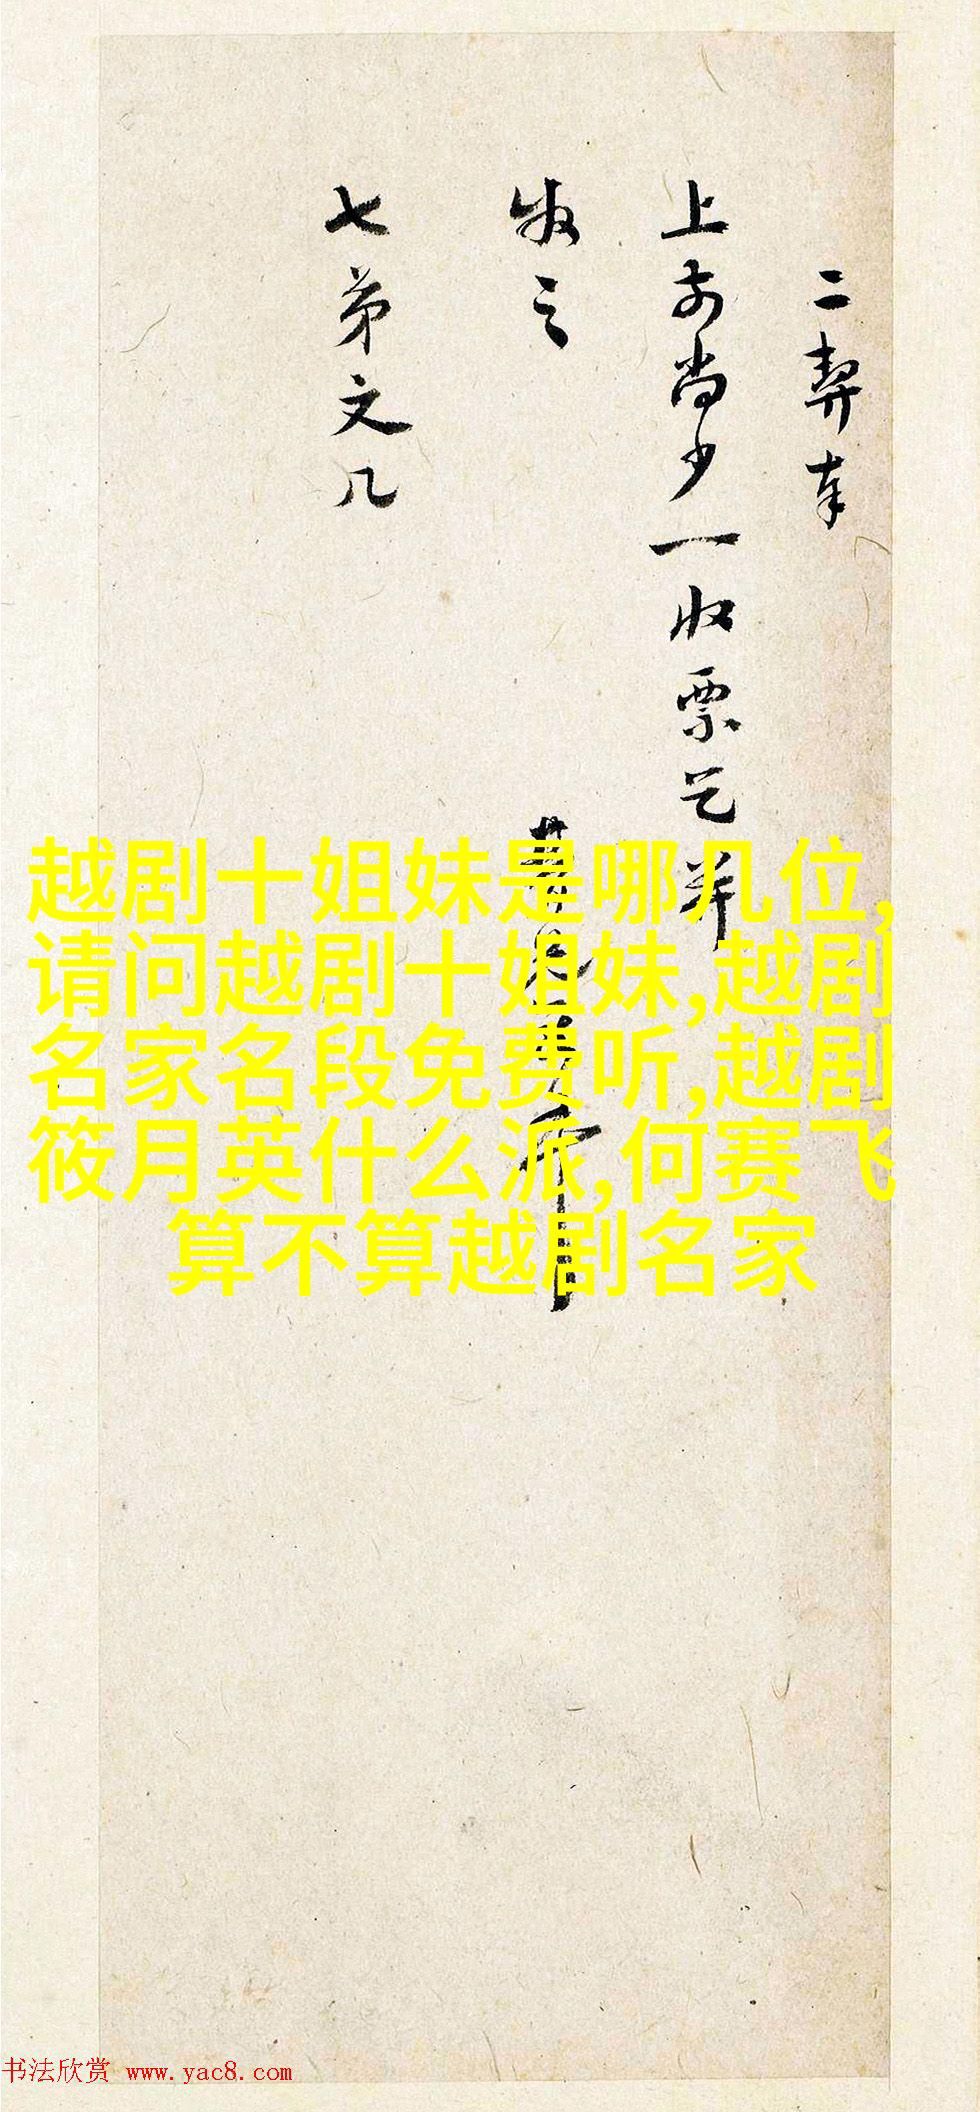 二契奉
上前尚少一收票乞并
收之
七弟文几
越剧十姐妹是哪几位,
请问越剧十姐妹,越剧
名家名段免费听,越剧
筱月英什么派,何赛飞
算不算越剧名家
书法欣赏 www.yac8.com